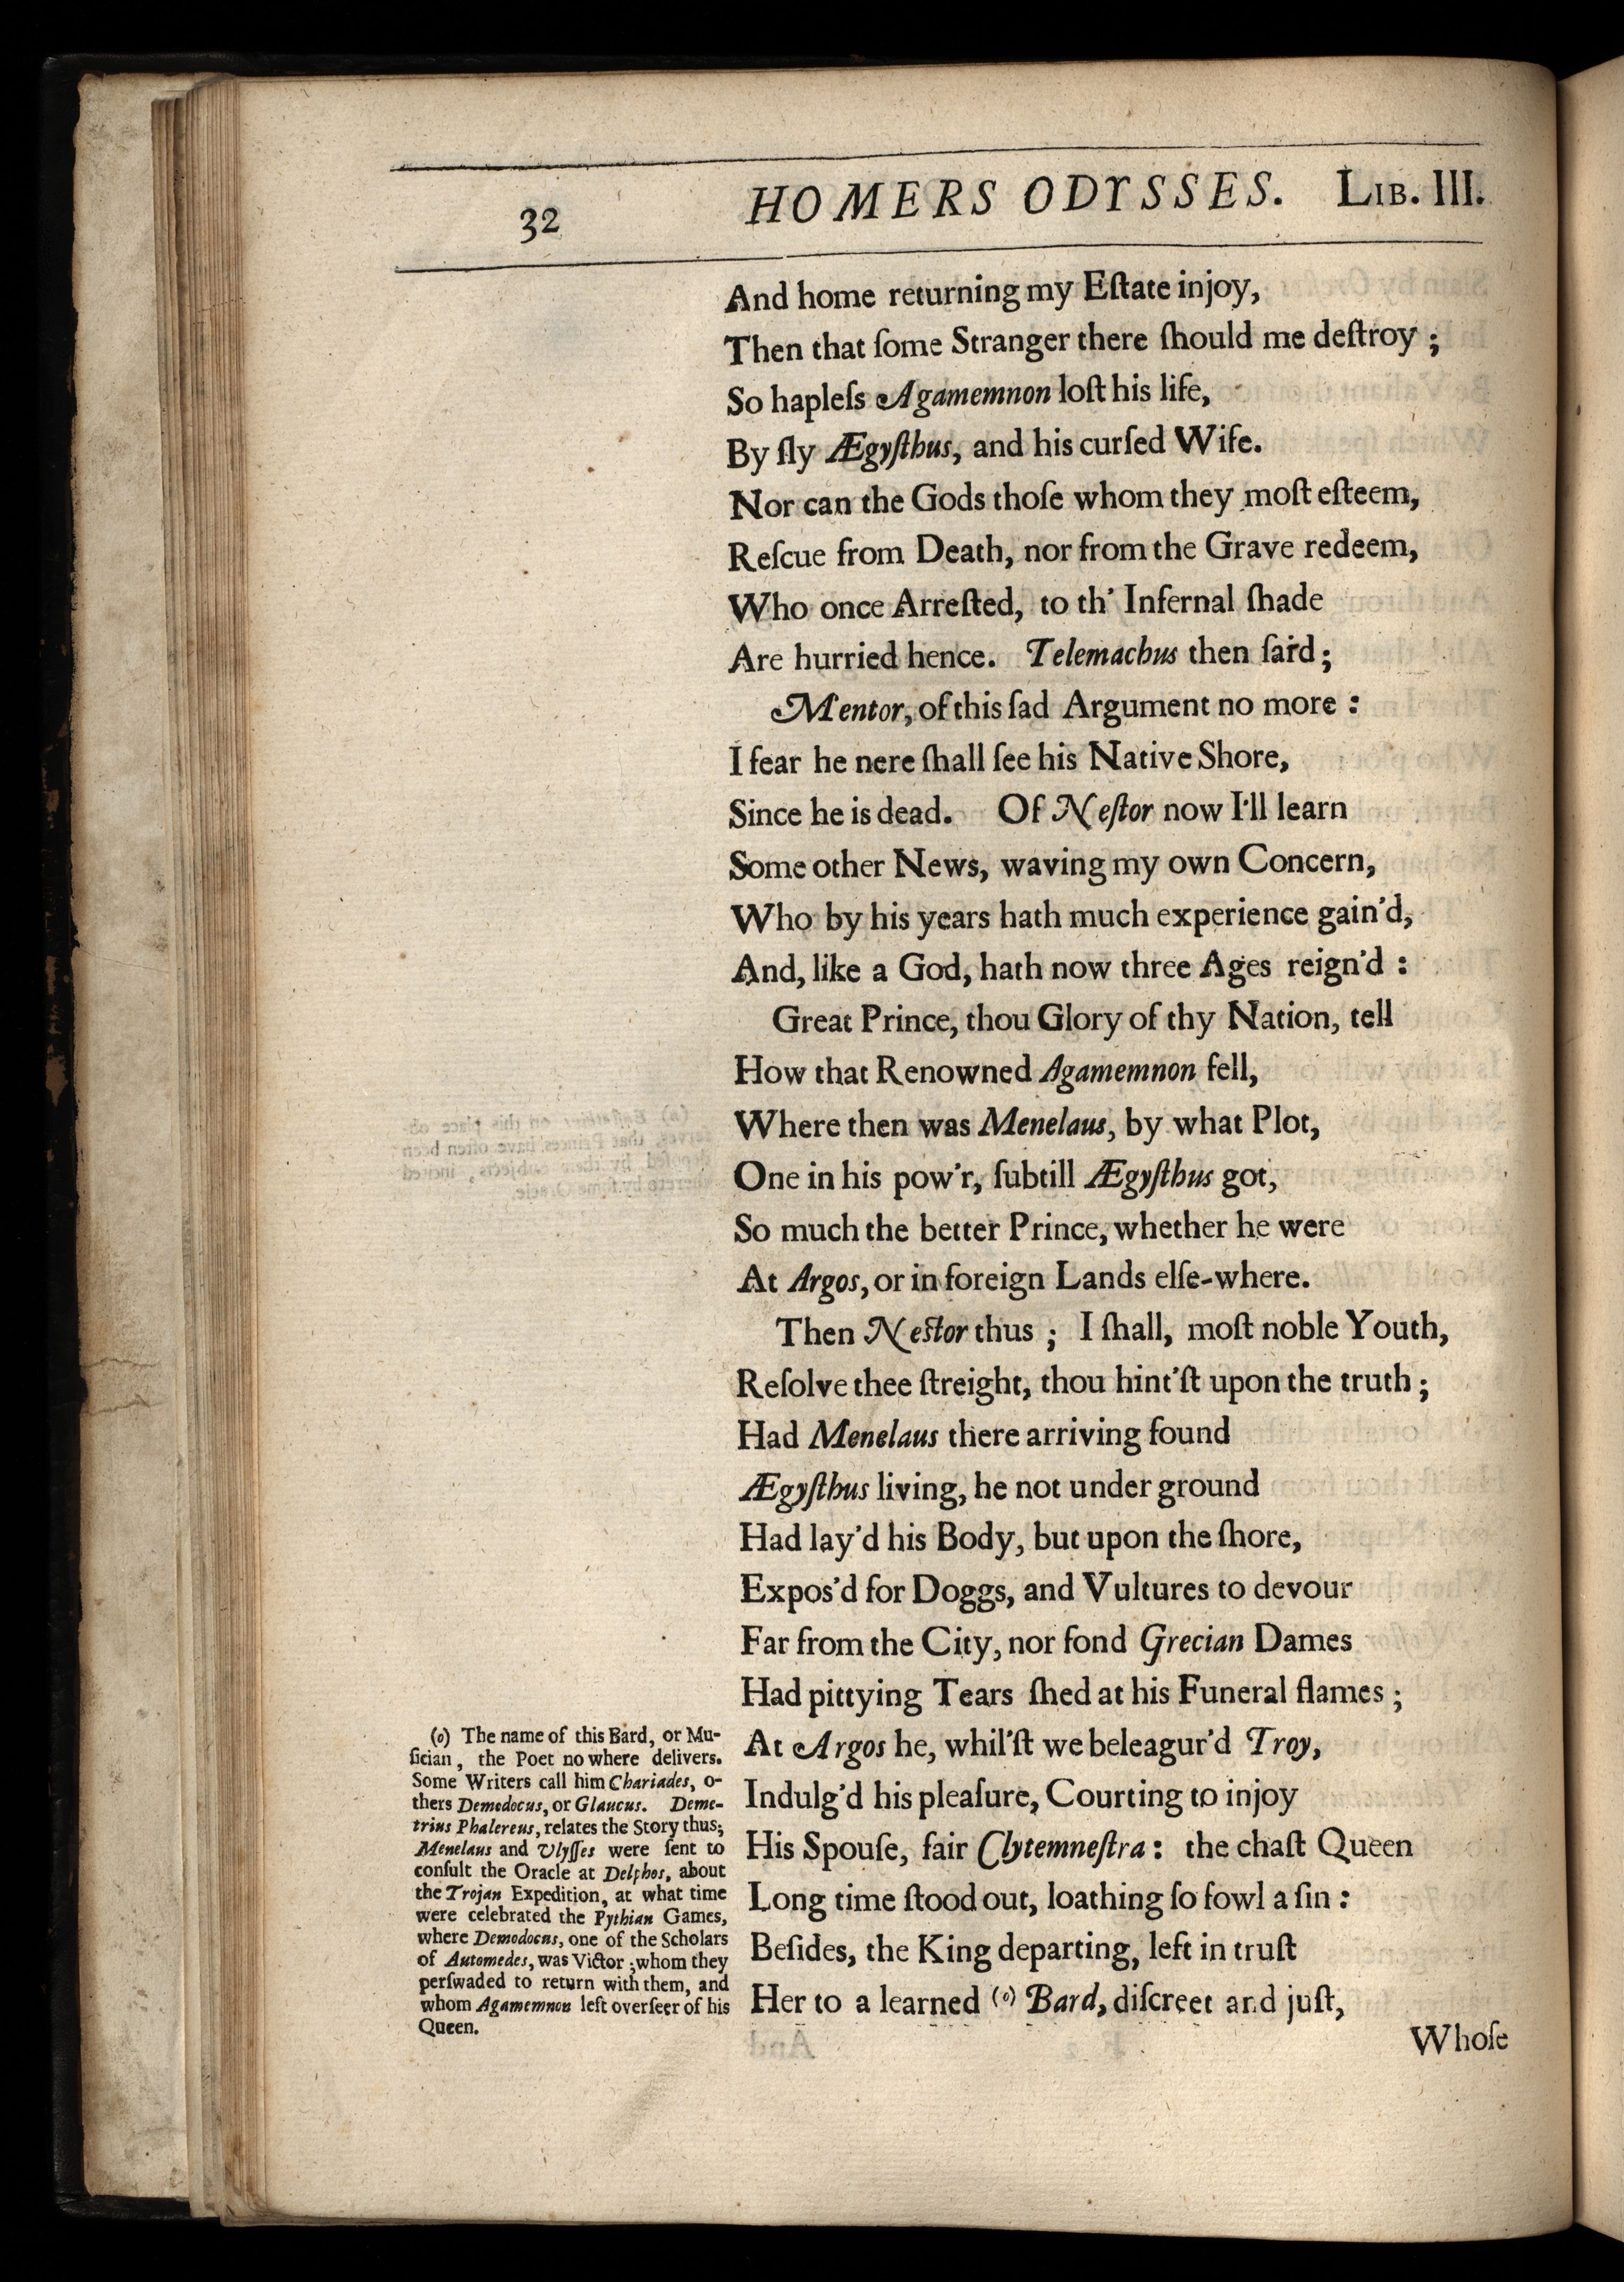 32 HOMERS ODYSSES. LIB. III.
And home returning my Eſtate injoy,
Then that ſome Stranger there ſhould me deſtroy ;
So hapleſs Agamemnon loſt his life,
By ſly Ægyſthus, and his curſed Wife.
Nor can the Gods thoſe whom they moſt eſteem,
Reſcue from Death, nor from the Grave redeem,
Who once Arreſted, to th' Infernal ſhade
Are hurried hence. Telemachus then ſaid ;
Mentor, of this ſad Argument no more :
I fear he nere ſhall ſee his Native Shore,
Since he is dead. Of Neſtor now I'll learn
Some other News, waving my own Concern,
Who by his years hath much experience gain'd,
And, like a God, hath now three Ages reign'd :
Great Prince, thou Glory of thy Nation, tell
How that Renowned Agamemnon fell,
Where then was Menelaus, by what Plot,
One in his pow'r, ſubtill Ægyſthus got,
So much the better Prince, whether he were
At Argos, or in foreign Lands elſe-where.
Then Neſtor thus ; I ſhall, moſt noble Youth,
Reſolve thee ſtreight, thou hint'ſt upon the truth ;
Had Menelaus there arriving found
Ægyſthus living, he not under ground
Had lay'd his Body, but upon the ſhore,
Expos'd for Doggs, and Vultures to devour
Far from the City, nor fond Grecian Dames
Had pittying Tears ſhed at his Funeral flames ;
At Argos he, whil'ſt we beleagur'd Troy,
Indulg'd his pleaſure, Courting to injoy
His Spouſe, fair Clytemneſtra : the chaſt Queen
Long time ſtood out, loathing ſo fowl a ſin :
Beſides, the King departing, left in truſt
Her to a learned (o) Bard, diſcreet and juſt,
Whoſe
(o) The name of this Bard, or Mu-
ſician, the Poet no where delivers.
Some Writers call him Chariades, o-
thers Demodocus, or Glaucus. Deme-
trius Phalereus, relates the Story thus;
Menelaus and Ulyſſes were ſent to
conſult the Oracle at Delphos, about
the Trojan Expedition, at what time
were celebrated the Pythian Games,
where Demodocus, one of the Scholars
of Automedes, was Victor ; whom they
perſwaded to return with them, and
whom Agamemnon left overſeer of his
Queen.